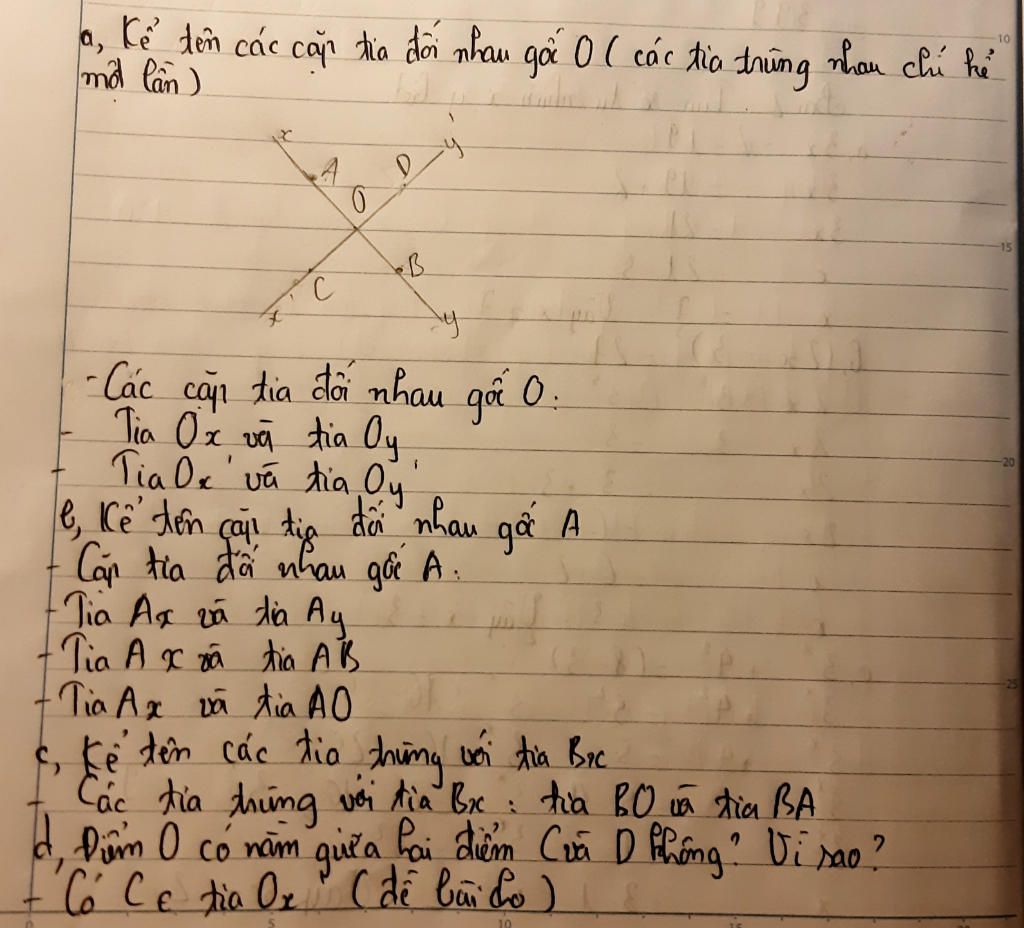 a, Kể tên các cặp tia đối nhau gốc O ( các tia trùng nhau chỉ kể
một lần )
x
y'
A
D
O
B
C
x'
y
- Các cặp tia đối nhau gốc O :
- Tia Ox và tia Oy
- Tia Ox' và tia Oy'
b, Kể tên cặp tia đối nhau gốc A
- Cặp tia đối nhau gốc A :
- Tia Ax và tia Ay
- Tia Ax và tia AB
- Tia Ax và tia AO
c, Kể tên các tia trùng với tia Bx
- Các tia trùng với tia Bx : tia BO và tia BA
d, Điểm O có nằm giữa hai điểm C và D không? Vì sao?
- Có C ∈ tia Ox' ( đề bài cho )